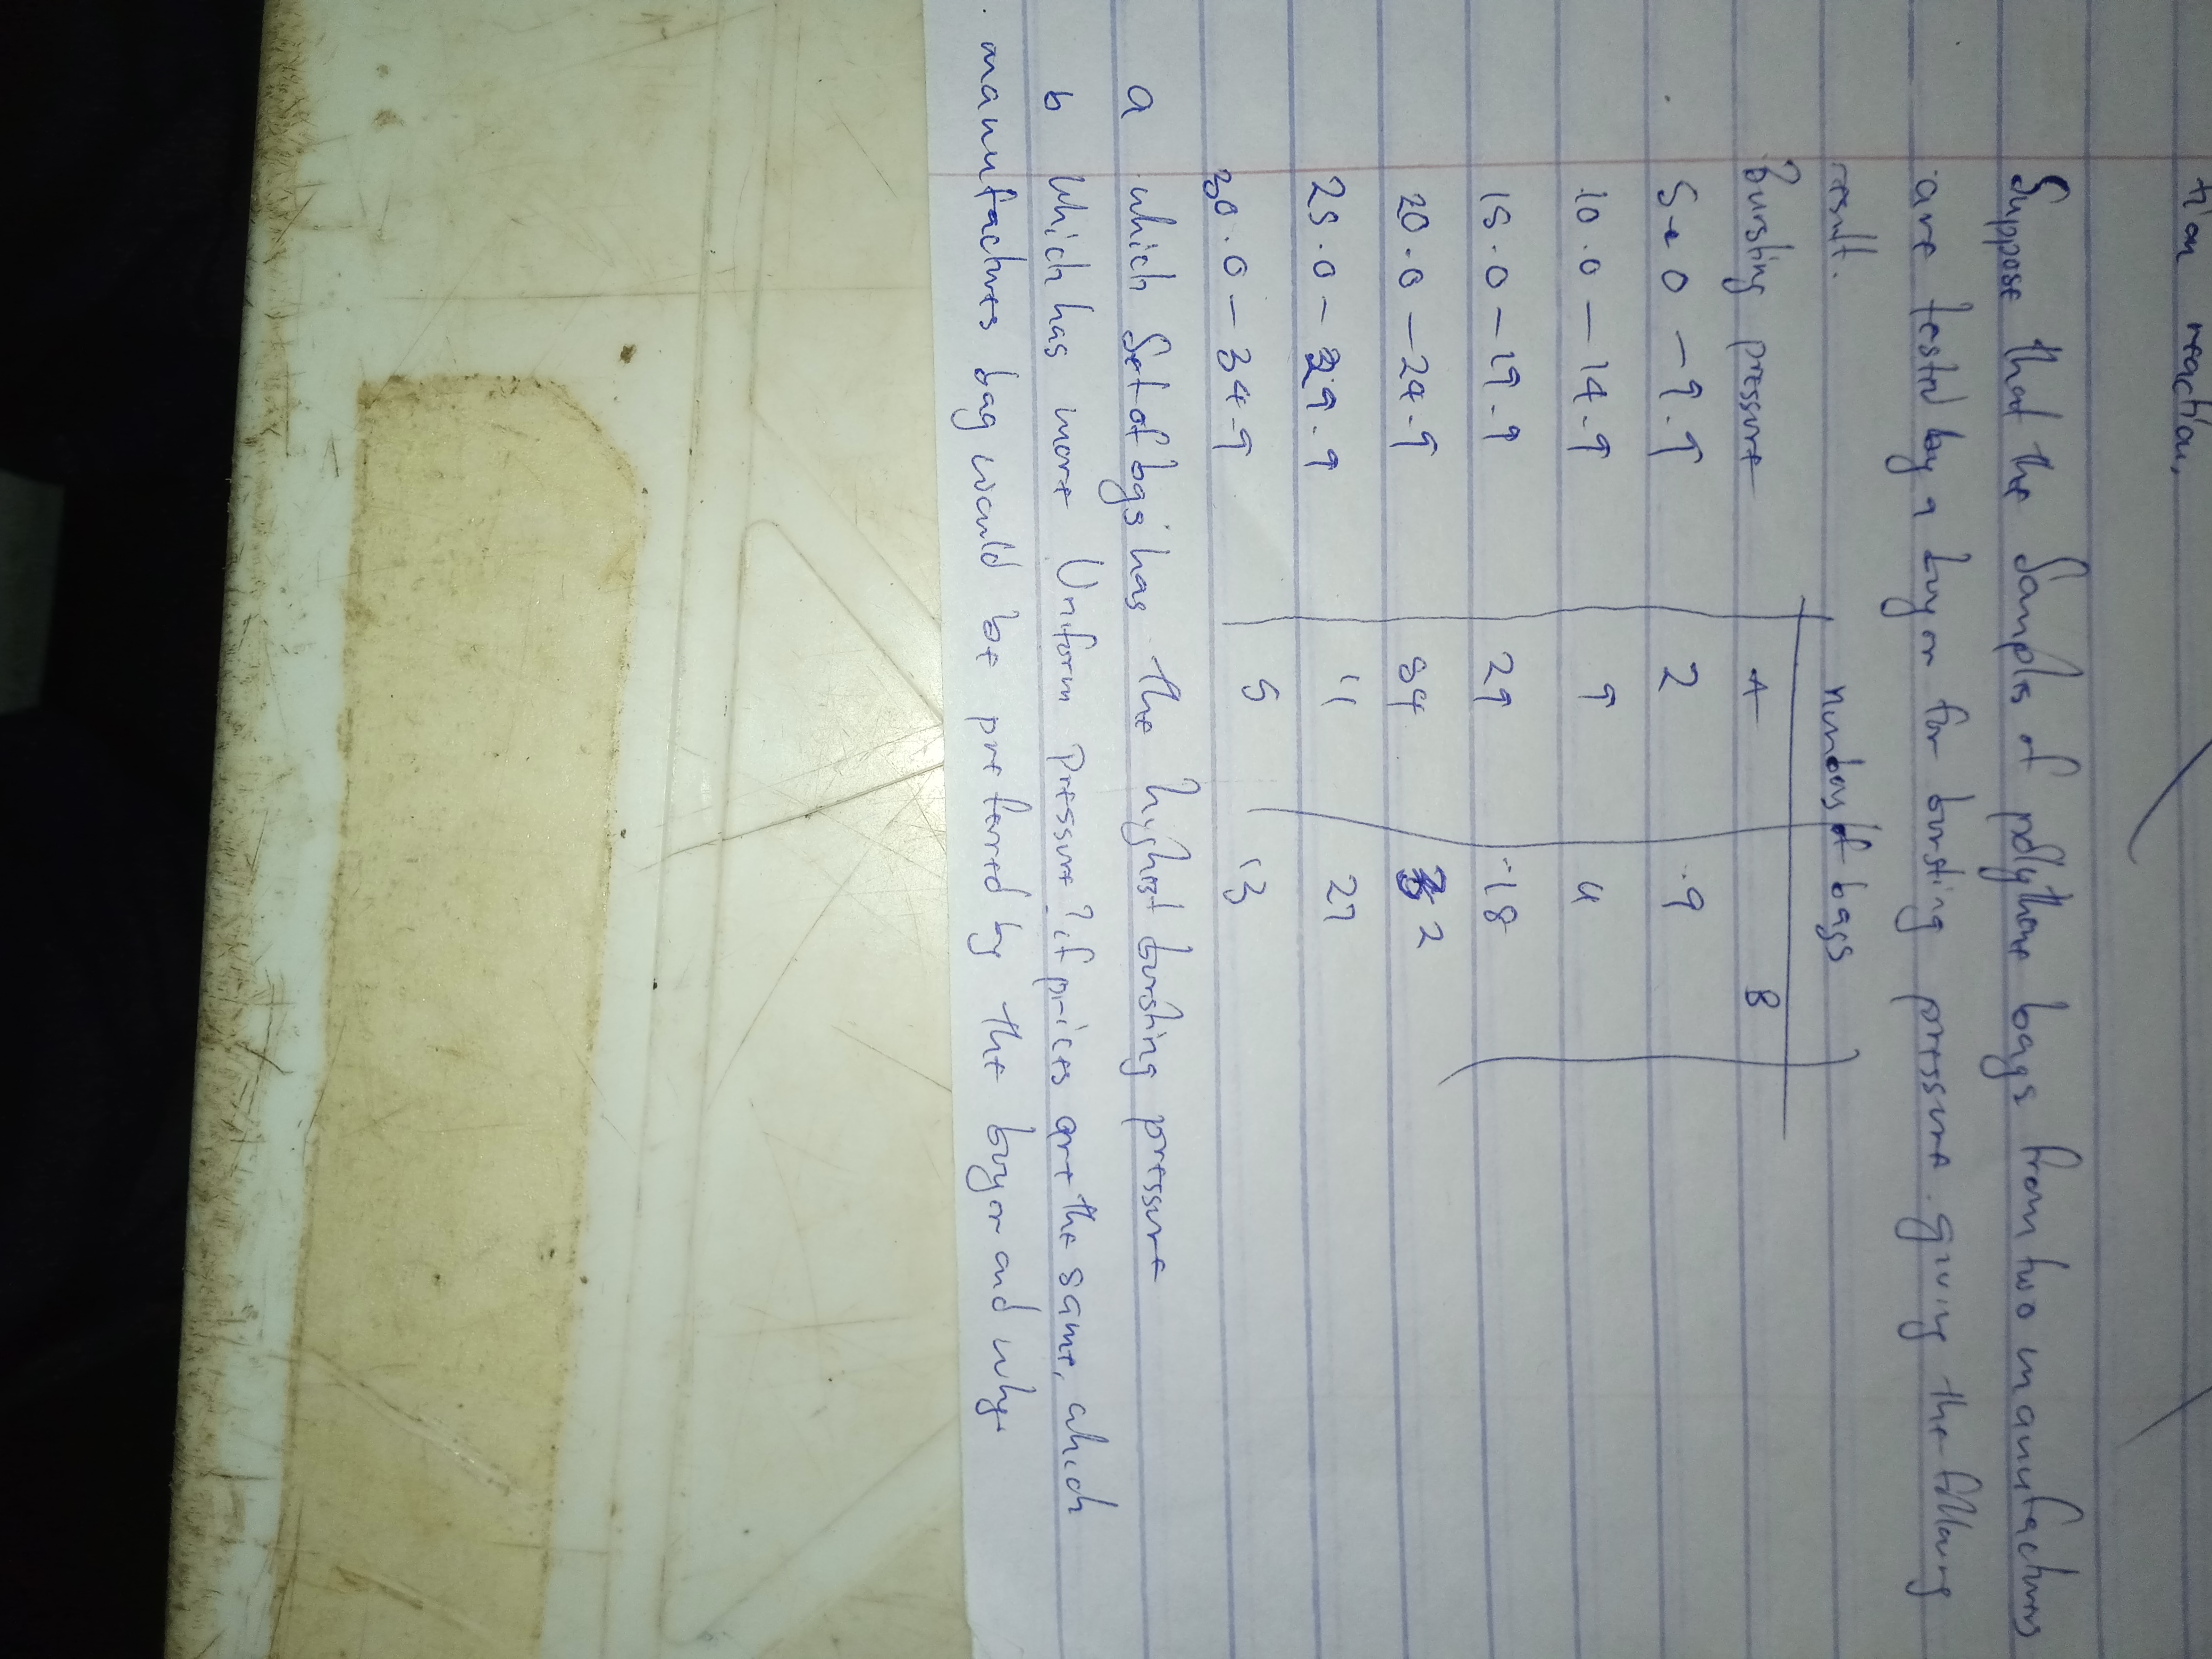 tion reaction,
Suppose that the Samples of polythene bags from two manufactures
are tested by a buyer for bursting pressure. giving the following
result.
numbers of bags
Bursting pressure A B
5.0 - 9.9 2 9
10.0 - 14.9 9 11
15.0 - 19.9 29 18
20.0 - 24.9 54 2
25.0 - 29.9 11 27
30.0 - 34.9 5 13
a which Set of bgs has the highest bursting pressure
b Which has more Uniform Pressure? if prices are the same, which
manufactures bag would be preferred by the buyer and why.